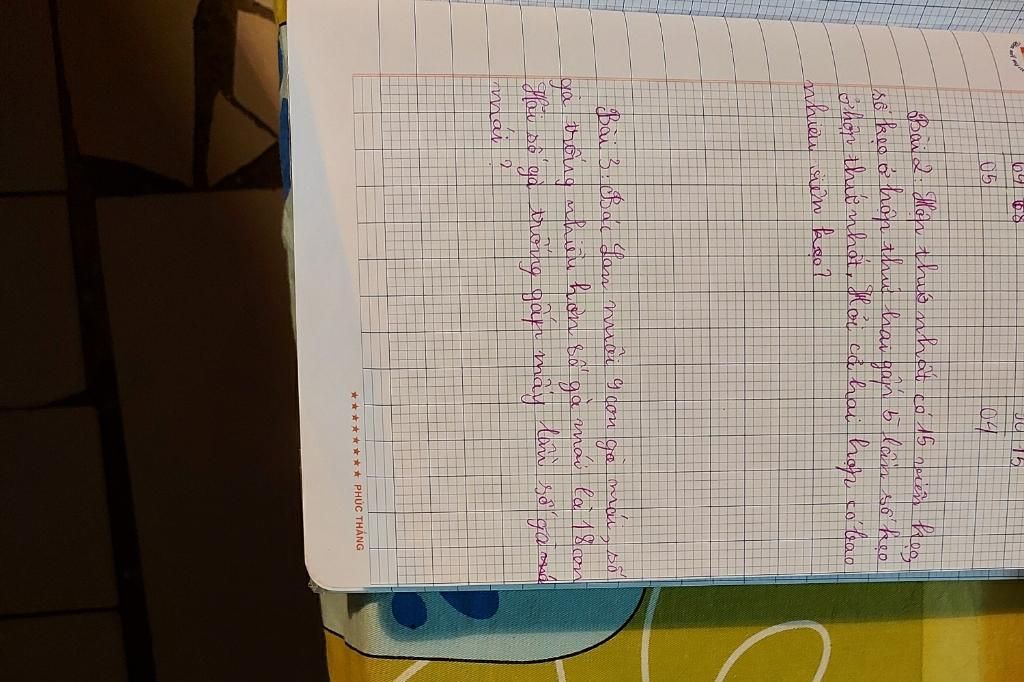 69 68
05
30 15
04
Bài 2: Hộp thứ nhất có 15 viên kẹo,
số kẹo ở hộp thứ hai gấp 5 lần số kẹo
ở hộp thứ nhất. Hỏi cả hai hộp có bao
nhiêu viên kẹo?
Bài 3: Bác Lan nuôi 9 con gà mái, số
gà trống nhiều hơn số gà mái là 18 con
Hỏi số gà trống gấp mấy lần số gà
mái?
★★★★★★★★★ PHÚC THẮNG